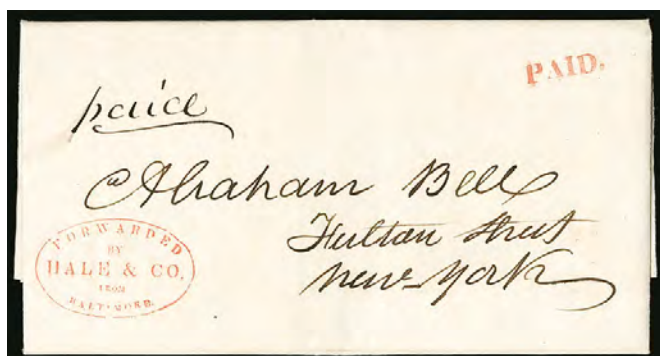 PAID.
paid
Abraham Bell
Fulton Street
New York
FORWARDED
BY
HALE & CO.
FROM
BALTIMORE.